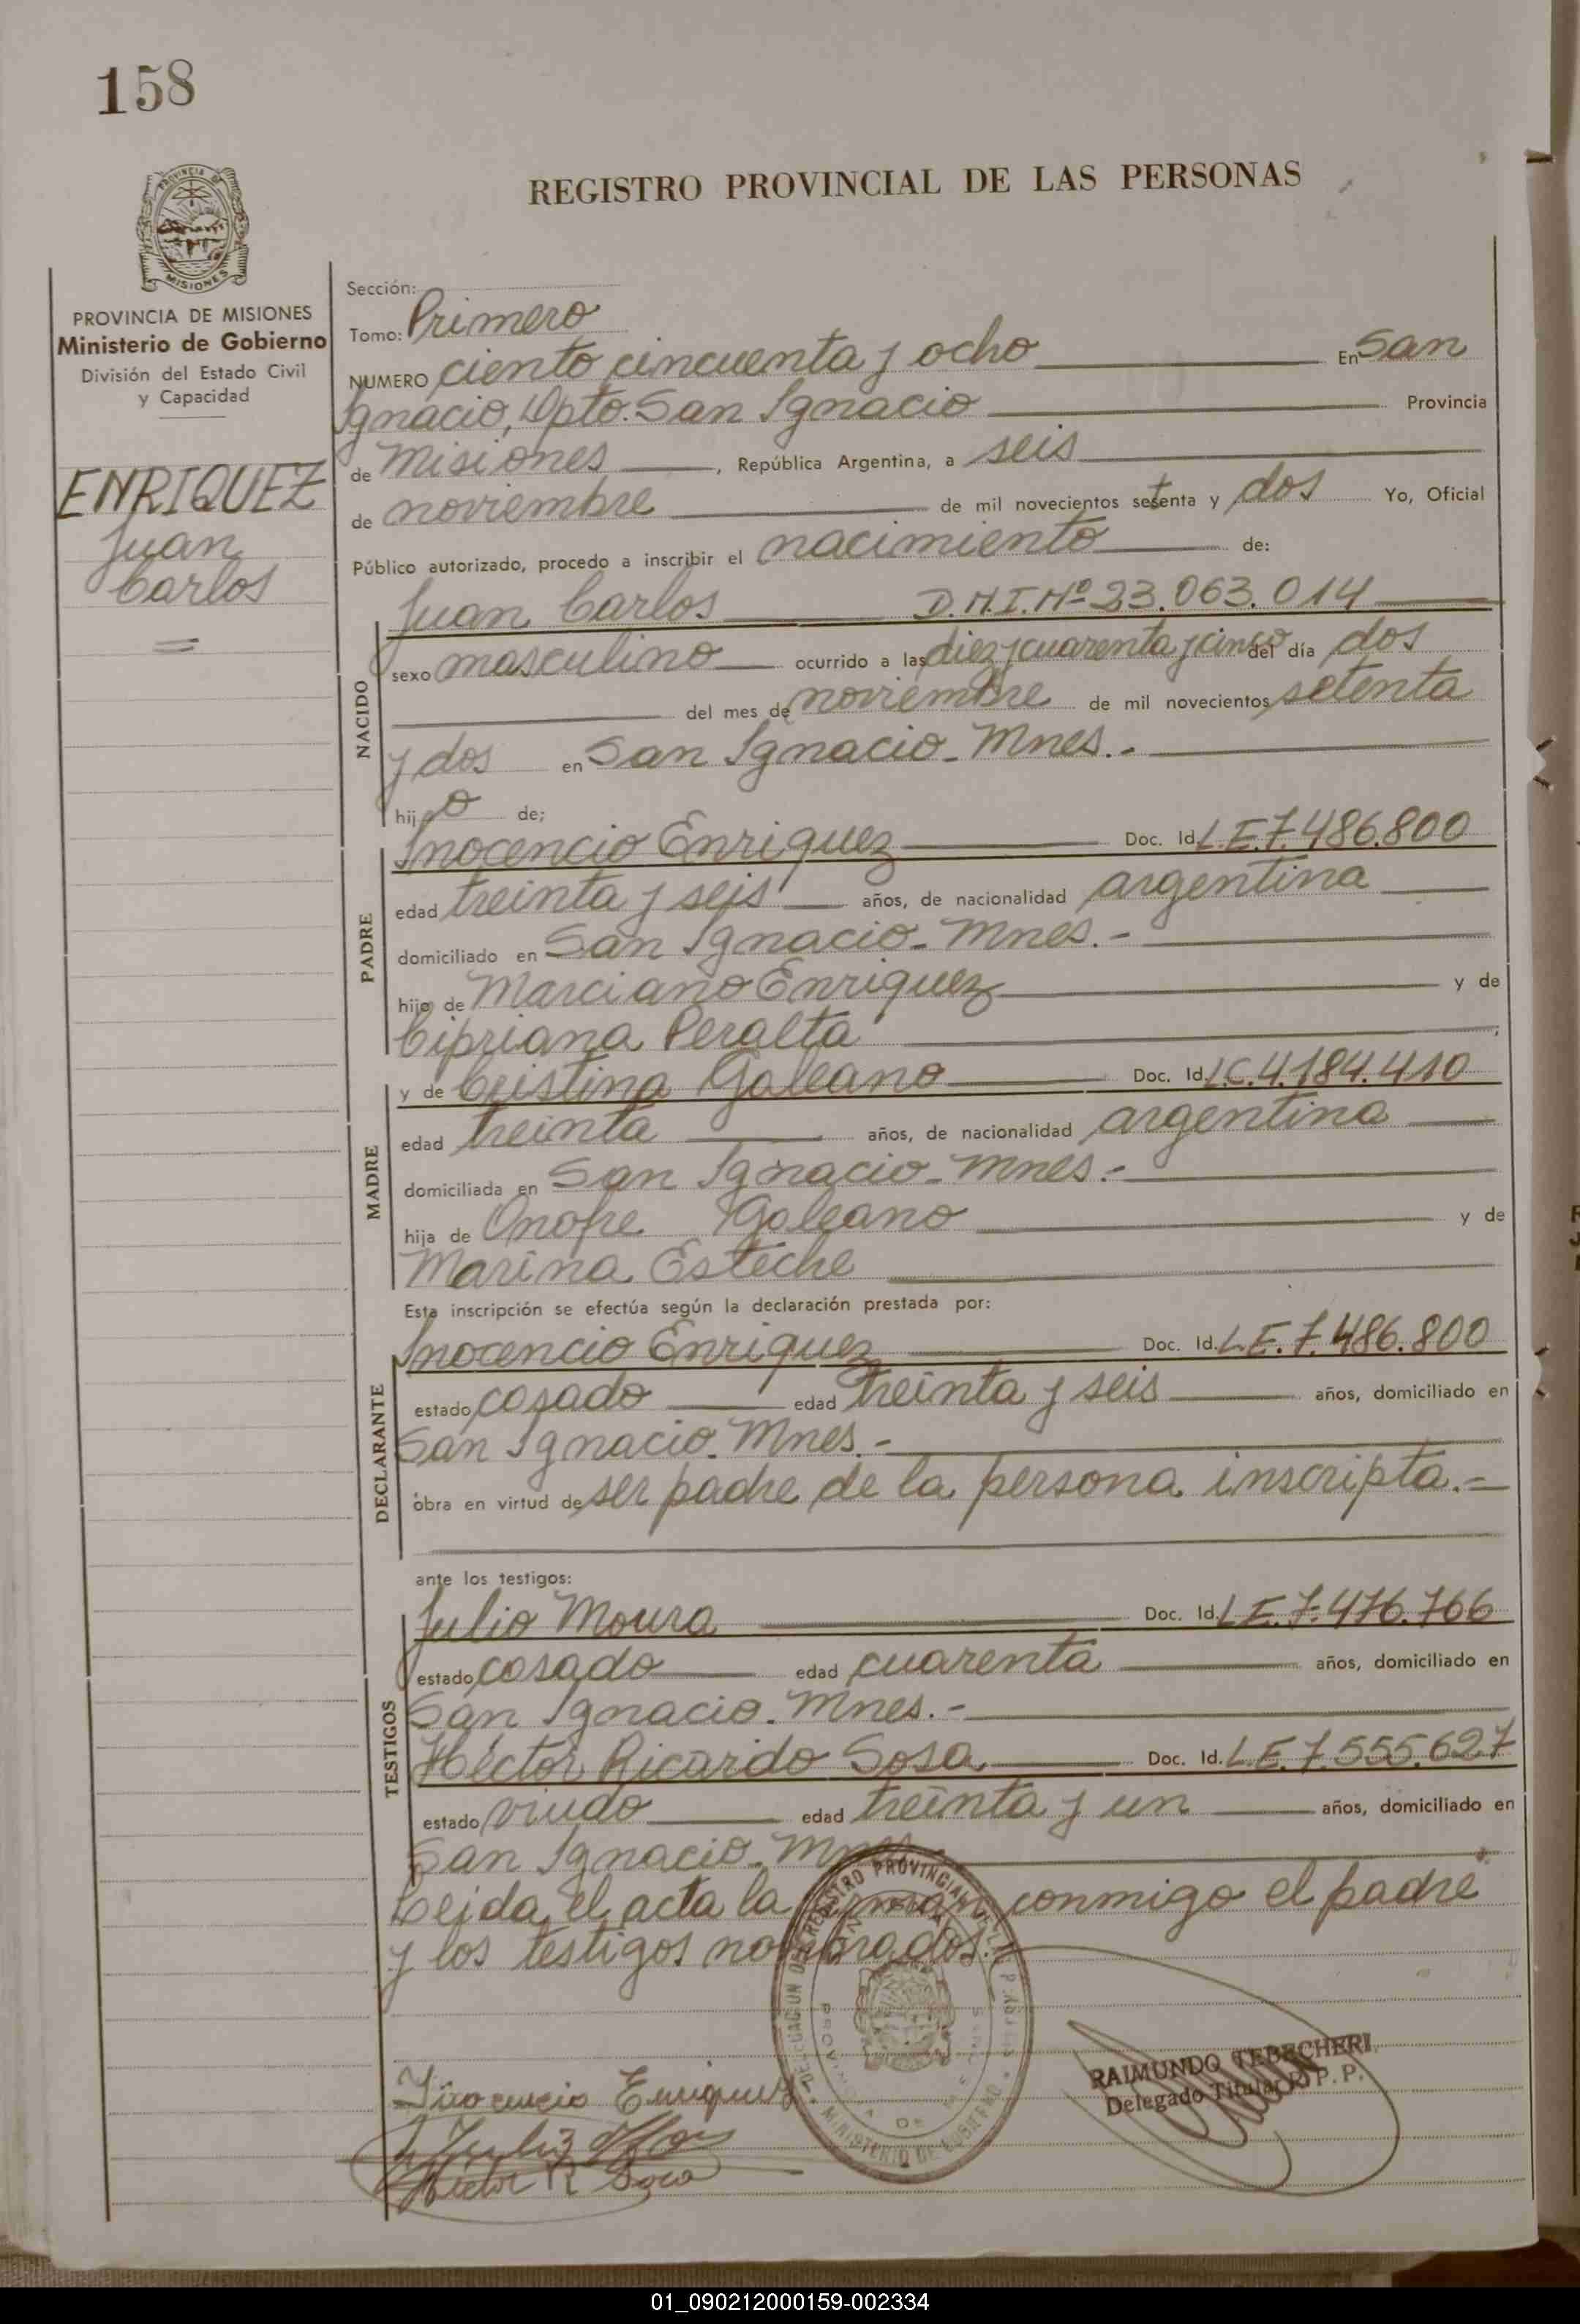 158
REGISTRO PROVINCIAL DE LAS PERSONAS
PROVINCIA DE MISIONES
Ministerio de Gobierno
División del Estado Civil
y Capacidad
ENRIQUEZ
Juan
Carlos
Sección:
Tomo: Primero
NUMERO ciento cincuenta y ocho En San
Ignacio, Dpto. San Ignacio Provincia
de Misiones, República Argentina, a seis
de noviembre de mil novecientos setenta y dos Yo, Oficial
Público autorizado, procedo a inscribir el nacimiento de:
NACIDO
Juan Carlos D.N.I. Nº 23.063.014
sexo masculino ocurrido a las diez y cuarenta y cinco del día dos
del mes de noviembre de mil novecientos setenta
y dos en San Ignacio - Mnes. -
hijo de;
PADRE
Inocencio Enriquez Doc. Id. L.E. 7.486.800
edad treinta y seis años, de nacionalidad argentina
domiciliado en San Ignacio - Mnes. -
hijo de Marciano Enriquez y de
Cipriana Peralta
MADRE
y de Cristina Galeano Doc. Id. L.C. 4.184.410
edad treinta años, de nacionalidad argentina
domiciliada en San Ignacio - Mnes. -
hija de Onofre Galeano y de
Marina Esteche
Esta inscripción se efectúa según la declaración prestada por:
DECLARANTE
Inocencio Enriquez Doc. Id. L.E. 7.486.800
estado casado edad treinta y seis años, domiciliado en
San Ignacio - Mnes. -
obra en virtud de ser padre de la persona inscripta. =
ante los testigos:
TESTIGOS
Julio Moura Doc. Id. L.E. 7.476.766
estado casado edad cuarenta años, domiciliado en
San Ignacio - Mnes. -
Héctor Ricardo Sosa Doc. Id. L.E. 7.555.627
estado viudo edad treinta y un años, domiciliado en
San Ignacio - Mnes.
Leida el acta la firman conmigo el padre
y los testigos nombrados.
Inocencio Enriquez
Hector R Sosa
RAIMUNDO TEBECHERI
Delegado Titular R. P. P.
MINISTERIO DE GOBIERNO
01_090212000159-002334